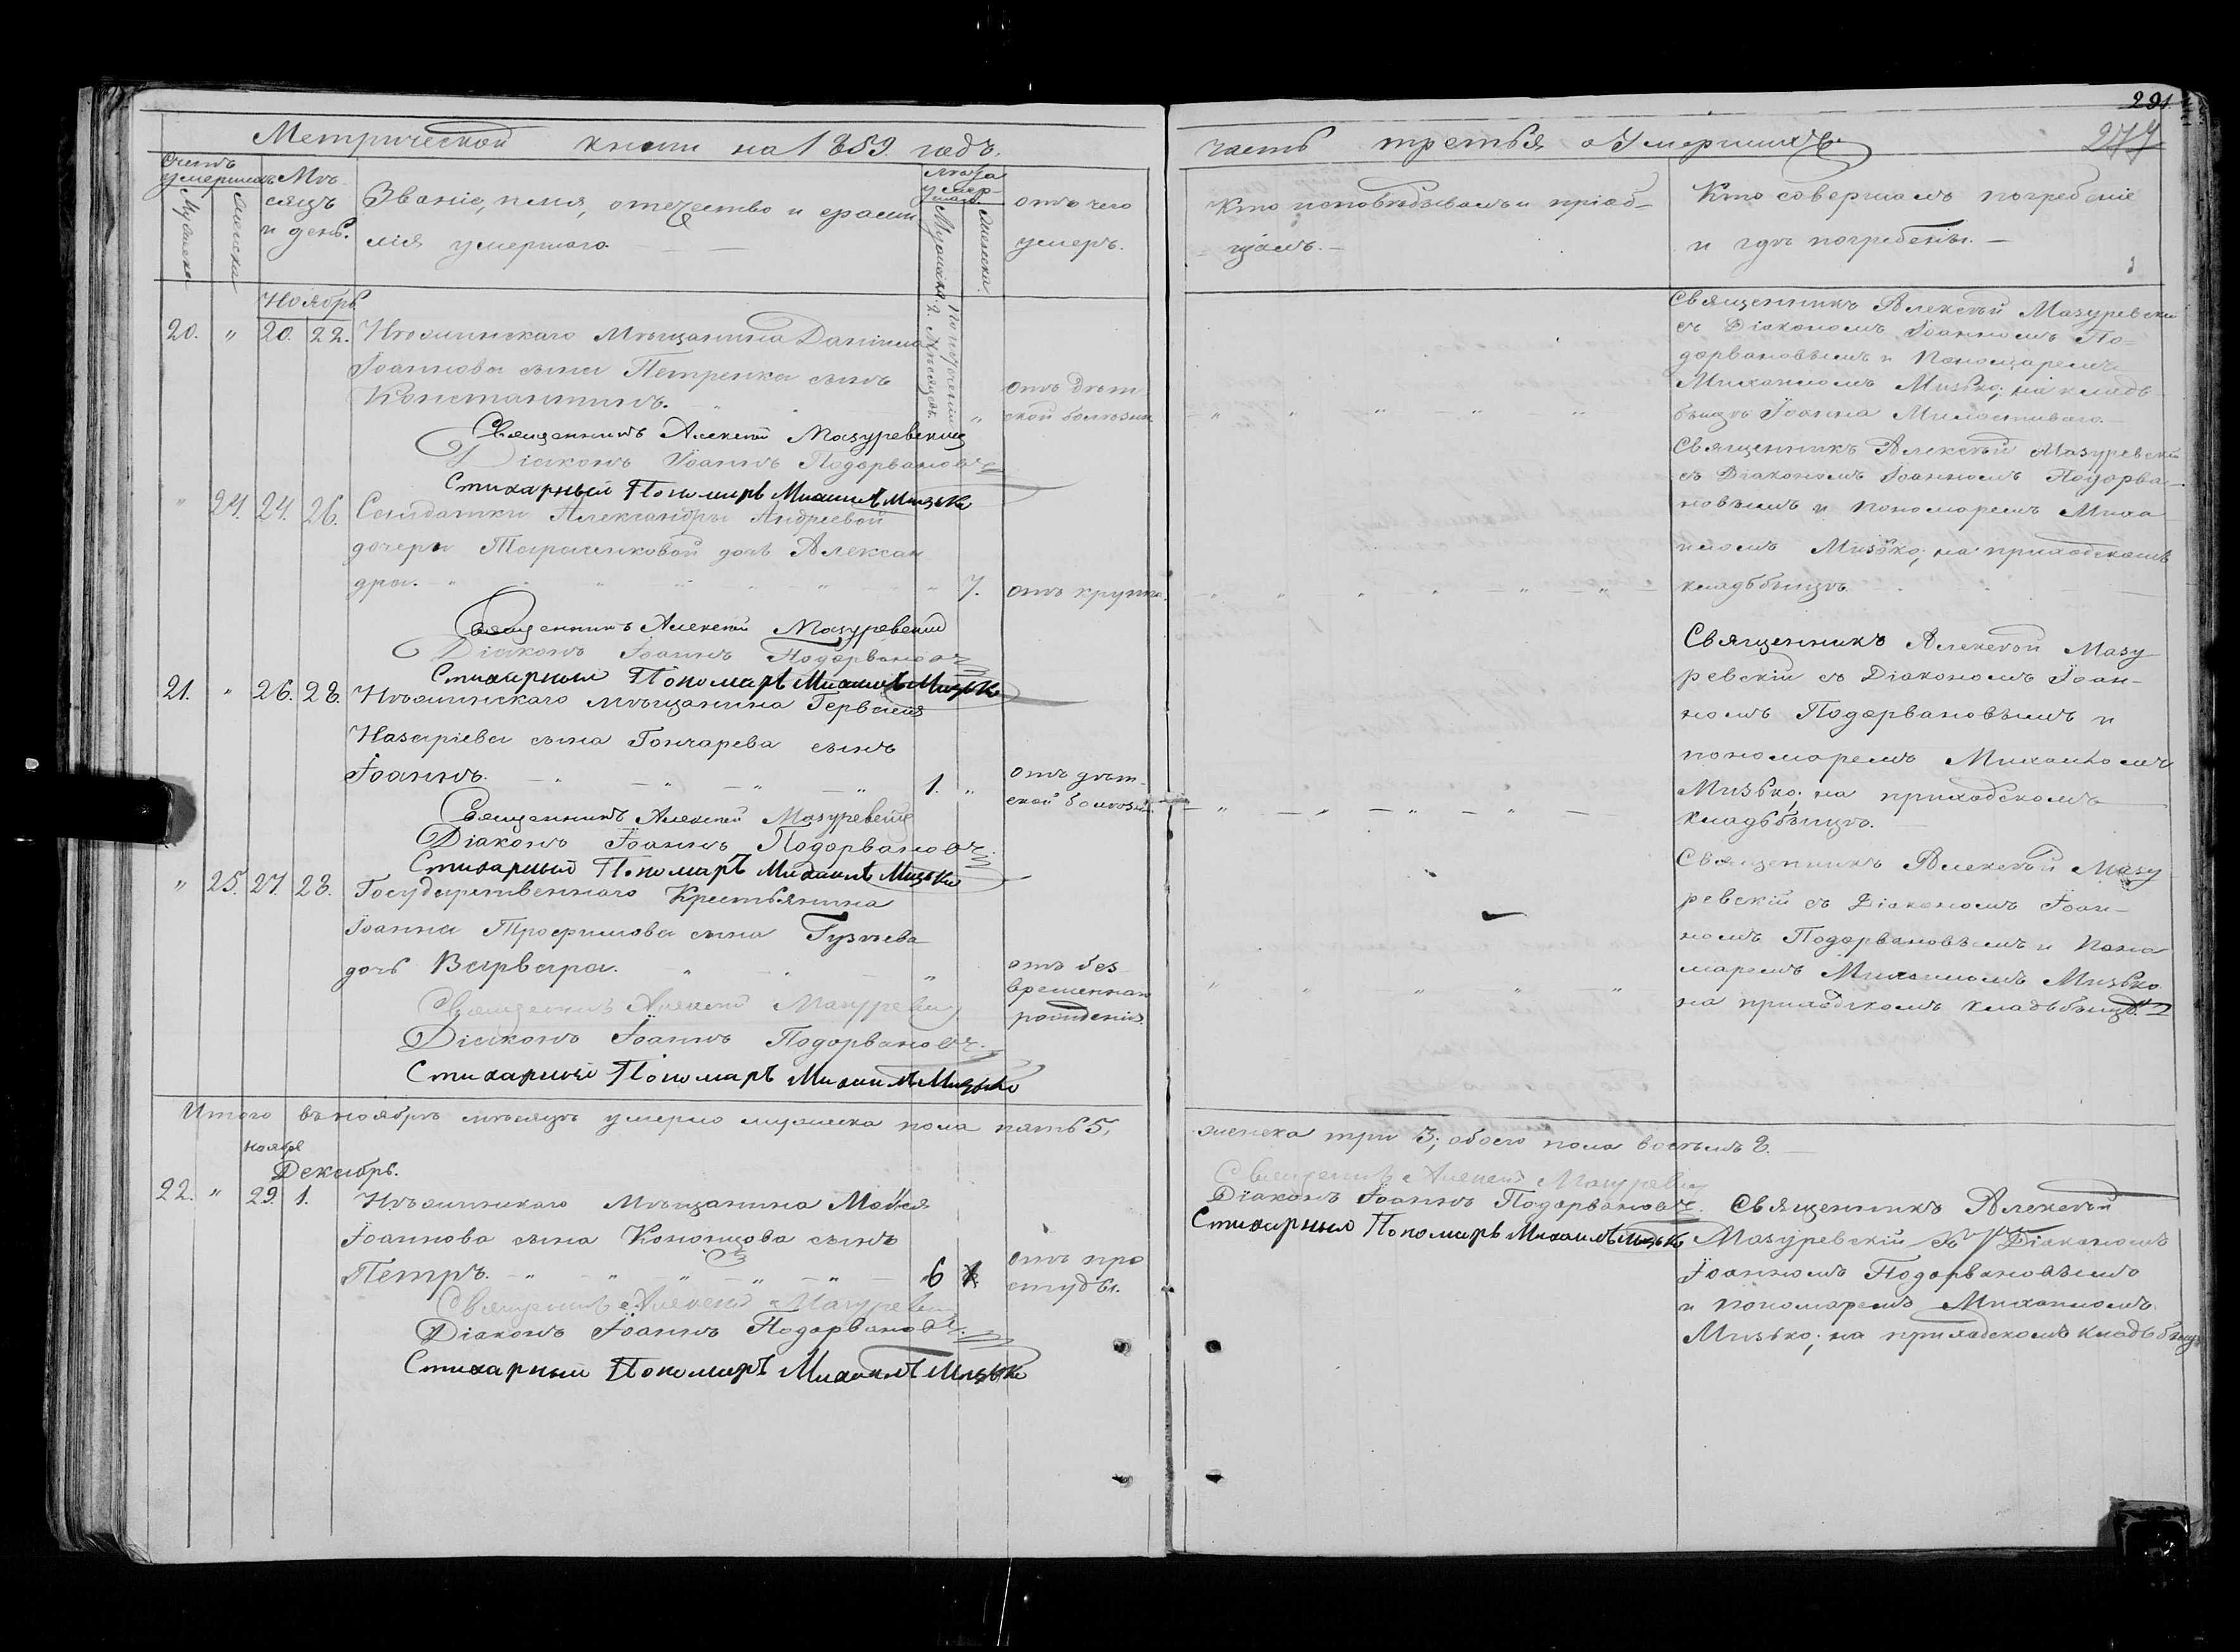 291.
277
Метрической книги на 1859 годъ.
часть третья о Умершихъ
Счетъ умершихъ
Мужеска
Женска
Мѣ-
сяцъ
и день.
Званіе, имя, отечество и фами-
лія умершаго.
Лѣта
умер-
шаго
Мужеска
Женска.
отъ чего
умеръ.
Кто исповѣдывалъ и пріоб-
щалъ.
Кто совершалъ погребеніе
и гдѣ погребены.
Ноябрь
20. " 20. 22. Нѣжинскаго Мѣщанина Даніила
Іоаннова сына Петренка сынъ
Константинъ.
2. Мѣсяцевъ.
отъ дѣт
ской болѣзни
Священникъ Алексѣй Мазуревскій
съ Діакономъ Іоанномъ По-
дорвановымъ и Пономаремъ
Михаиломъ Мизько; на кладь-
бищѣ Іоанна Милостиваго.
Священникъ Алексѣй Мазуревскій
Діаконъ Іоаннъ Подорвановъ
Стихарный Пономарь Михаилъ Мизько
" 24. 24. 26. Солдатки Александры Андреевой
дочери Тарасенковой дочь Алексан
дра. 7. отъ крупа.
Священникъ Алексѣй Мазуревскій
съ Діакономъ Іоанномъ Подорва-
новымъ и пономоремъ Миха
иломъ Мизько; на приходскомъ
кладьбищѣ.
Священникъ Алексѣй Мазуревскій
Діаконъ Іоаннъ Подорвановъ
Стихарный Пономарь Михаилъ Мизько
21. " 26. 28. Нѣжинскаго мѣщанина Гервасія
Назаріева сына Гончарева сынъ
Іоаннъ. 1. "
отъ дѣт-
ской болѣзни
Священникъ Алексѣй Мазу
ревскій съ Діакономъ Іоан-
номъ Подорвановымъ и
пономаремъ Михаиломъ
Мизько; на приходскомъ
кладьбищѣ.
Священникъ Алексѣй Мазуревскій
Діаконъ Іоаннъ Подорвановъ
Стихарный Пономарь Михаилъ Мизько
" 25. 27. 28. Государственнаго Крестьянина
Іоанна Трофимова сына Гузѣева
дочь Варвара.
отъ без
временнаго
рожденія.
Священникъ Алексѣй Мазу
ревскій съ Діакономъ Іоан-
номъ Подорвановымъ и Поно
маремъ Михаиломъ Мизько
на приходскомъ кладьбищѣ.
Священникъ Алексѣй Мазуревскій
Діаконъ Іоаннъ Подорвановъ
Стихарный Пономарь Михаилъ Мизько
Итого въ ноябрѣ мѣсяцѣ умерло мужеска пола пять 5,
женска три 3; обоего пола восемь 8.
Священникъ Алексѣй Мазуревскій
Діаконъ Іоаннъ Подорвановъ
Стихарный Пономарь Михаилъ Мизько
ноября
Декабрь.
22. " 29. 1. Нѣжинскаго Мѣщанина Моѵсея
Іоаннова сына Кононцова сынъ
Петръ. 6
отъ про
студы.
Священникъ Алексѣй
Мазуревскій съ Діакономъ
Іоанномъ Подорвановымъ
и пономаремъ Михаиломъ
Мизько; на приходскомъ кладьбищѣ
Священникъ Алексѣй Мазуревскій
Діаконъ Іоаннъ Подорвановъ
Стихарный Пономарь Михаилъ Мизько